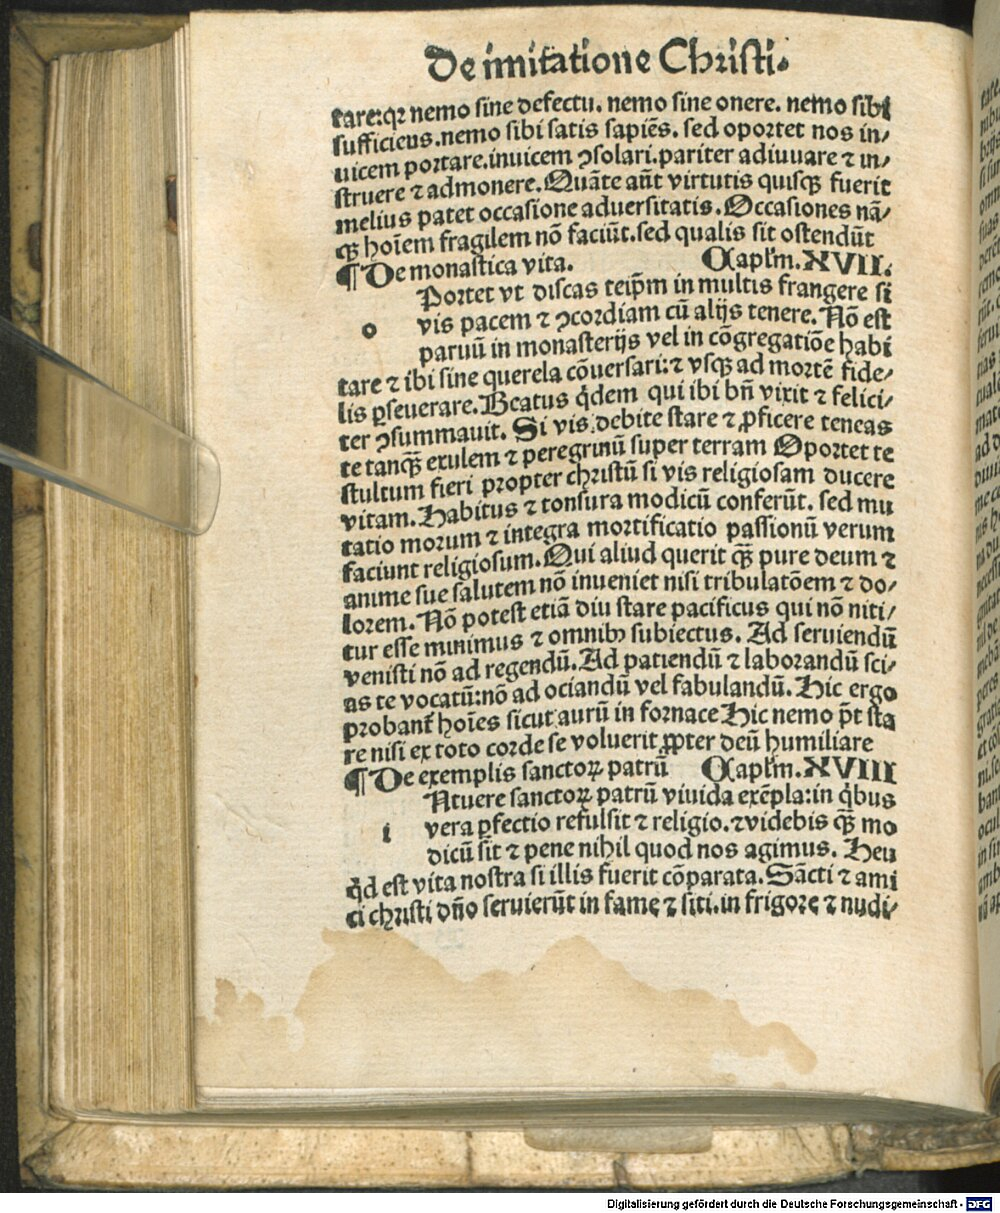 De imitatione Christi.
tare:qꝛ nemo sine defectu. nemo sine onere. nemo sibi
sufficiens.nemo sibi satis sapiēs. sed oportet nos in⸗
uicem portare.inuicem ꝯsolari.pariter adiuuare ⁊ in⸗
struere ⁊ admonere.Quāte aūt virtutis quisqꝫ fuerit
melius patet occasione aduersitatis.Occasiones nā⸗
qꝫ hoīem fragilem nō faciūt.sed qualis sit ostendūt
¶De monastica vita. Capl'm.XVII.
Portet vt discas teip̄m in multis frangere si
o vis pacem ⁊ ꝯcordiam cū alijs tenere.Nō est
paruū in monasterijs vel in cōgregatiōe habi
tare ⁊ ibi sine querela cōuersari:⁊ vsqꝫ ad mortē fide⸗
lis ꝑseuerare.Beatus q̇dem qui ibi bn̄ vixit ⁊ felici⸗
ter ꝯsummauit. Si vis debite stare ⁊ ꝓficere teneas
te tanqꝫ̄ exulem ⁊ peregrinū super terram Oportet te
stultum fieri propter christū si vis religiosam ducere
vitam.Habitus ⁊ tonsura modicū conferūt. sed mu
tatio morum ⁊ integra mortificatio passionū verum
faciunt religiosum.Qui aliud querit qꝫ̄ pure deum ⁊
anime sue salutem nō inueniet nisi tribulatōem ⁊ do⸗
lorem.Nō potest etiā diu stare pacificus qui nō niti⸗
tur esse minimus ⁊ omnibꝫ subiectus. Ad seruiendū
venisti nō ad regendū.Ad patiendū ⁊ laborandū sci⸗
as te vocatū:nō ad ociandū vel fabulandū.Hic ergo
probant̄ hoīes sicut aurū in fornace Hic nemo p̄t sta
re nisi ex toto corde se voluerit ꝓpter deū humiliare
¶De exemplis sanctoꝝ patrū Capl'm.XVIII
Ntuere sanctoꝝ patrū viuida exēpla:in q̇bus
i vera ꝑfectio refulsit ⁊ religio.⁊videbis qꝫ̄ mo
dicū sit ⁊ pene nihil quod nos agimus. Heu
q̇d est vita nostra si illis fuerit cōparata.Sācti ⁊ ami
ci christi dn̄o seruierūt in fame ⁊ siti.in frigore ⁊ nudi⸗
Digitalisierung gefördert durch die Deutsche Forschungsgemeinschaft - DFG